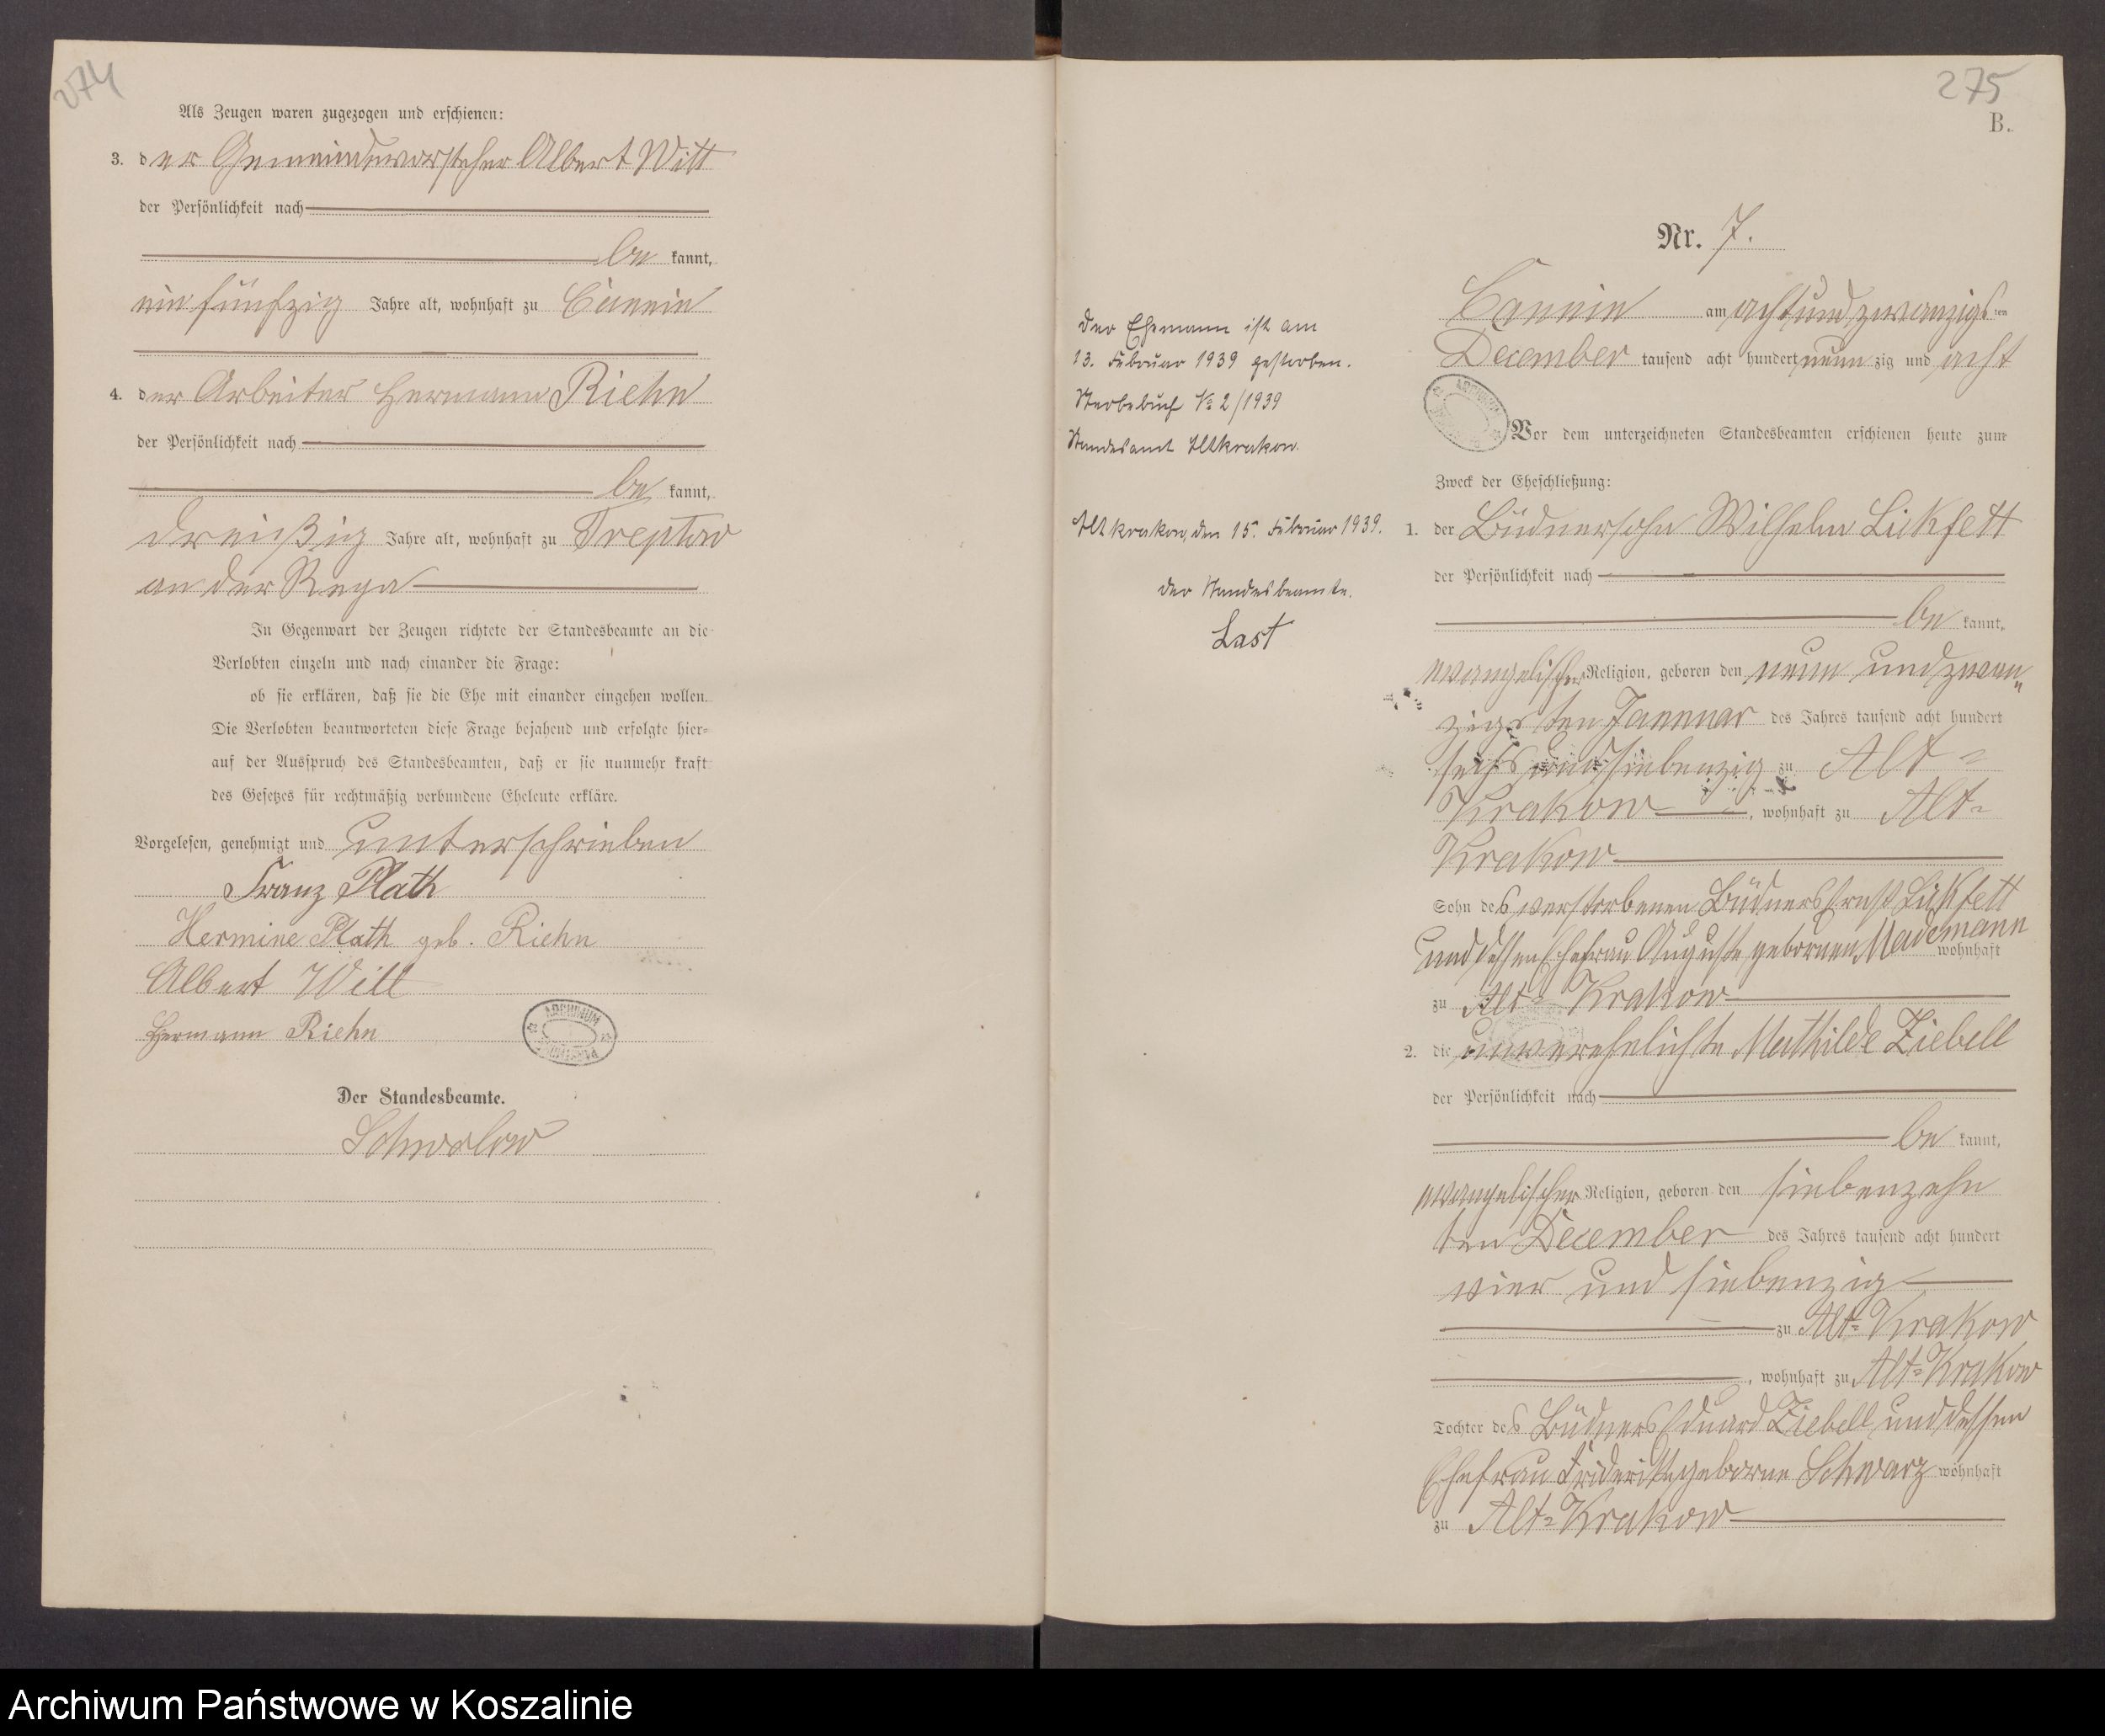 274
Als Zeugen waren zugezogen und erschienen:
3. der Gemeindevorsteher Albert Witt
der Persönlichkeit nach
be kannt,
ein fünfzig Jahre alt, wohnhaft zu Cannin
4. der Arbeiter Hermann Riehn
der Persönlichkeit nach
be kannt,
dreißig Jahre alt, wohnhaft zu Treptow
an der Rega
In Gegenwart der Zeugen richtete der Standesbeamte an die
Verlobten einzeln und nach einander die Frage:
ob sie erklären, daß sie die Ehe mit einander eingehen wollen.
Die Verlobten beantworteten diese Frage bejahend und erfolgte hier-
auf der Ausspruch des Standesbeamten, daß er sie nunmehr kraft
des Gesetzes für rechtmäßig verbundene Eheleute erkläre.
Vorgelesen, genehmigt und unterschrieben
Franz Plath
Hermine Plath geb. Riehn
Albert Witt
Hermann Riehn
ARCHIWUM
Der Standesbeamte.
275
B.
Nr. 7.
Cannin am acht und zwanzigsten
December tausend acht hundert neun zig und acht
ARCHIWUM
Vor dem unterzeichneten Standesbeamten erschienen heute zum
Zweck der Eheschließung:
1. der Büdnersohn Wilhelm Lickfett
der Persönlichkeit nach
be kannt,
evangelischer Religion, geboren den neun und zwan„
zigsten Januar des Jahres tausend acht hundert
sechs und siebenzig zu Alt-
Krakow, wohnhaft zu Alt-
Krakow
Sohn des verstorbenen Büdners Ernst Lickfett
und dessen Ehefrau Auguste gebornen wohnhaft
zu Alt-Krakow
2. die unverehelichte Mathilde Ziebell
der Persönlichkeit nach
be kannt,
evangelischer Religion, geboren den siebenzehn
ten December des Jahres tausend acht hundert
vier und siebenzig
zu Alt-Krakow
, wohnhaft zu Alt-Krakow
Tochter des Büdners Eduard Ziebell und dessen
Ehefrau Friderike geborne Schwarz wohnhaft
zu Alt-Krakow
Der Ehemann ist am
13. Februar 1939 gestorben.
Sterbebuch № 2/1939
Standesamt Altkrakow.
Altkrakow, den 15. Februar 1939.
Der Standesbeamte.
Last
Archiwum Państwowe w Koszalinie